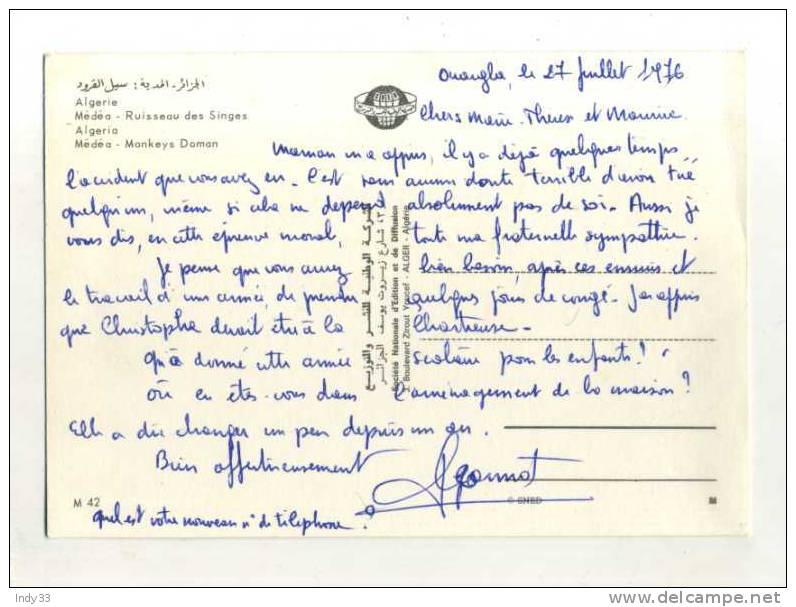 الجزائر - المدية : سبيل القرود
Algerie
Médéa - Ruisseau des Singes
Algeria
Médéa - Monkeys Doman
Ouargla, le 27 Juillet 1976
Chers Marie-Thérèse et Maurice.
Maman m'a appris, il y a déjà quelques temps,
l'accident que vous avez eu. C'est sans aucun doute terrible d'avoir tué
quelqu'un, même si cela ne dépend absolument pas de soi. Aussi je
vous dis, en cette épreuve moral, toute ma fraternelle sympathie.
Je pense que vous aurez bien besoin, après ces ennuis et
le travail d'une année, de prendre quelques jours de congé. J'ai appris
que Christophe devait être à la Chartreuse.
Qu'a donné cette année scolaire pour les enfants ?
où en êtes-vous dans l'aménagement de la maison ?
Elle a dû changer un peu depuis un an.
Bien affectueusement
quel est votre nouveau n° de téléphone ?
الشركة الوطنية للنشر والتوزيع
3، شارع زيروت يوسف الجزائر
Société Nationale d'Edition et de Diffusion
3, Boulevard Zirout Youcef - ALGER - Algérie
M 42
© SNED
Indy33
www.delcampe.net